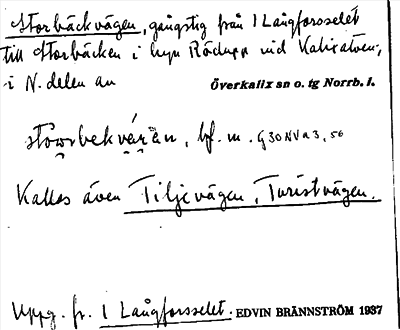 Storbäckvägen, gångstig från 1 Långforsselet
till Storbäcken i byn Rödupp vid Kalixälven,
i N. delen av Överkalix sn o. tg Norrb. l.
bf. m. G30NVa3, 56
Kallas även Tiljevägen, Turistvägen.
Uppg. fr. 1 Långforsselet. EDVIN BRÄNNSTRÖM 1937